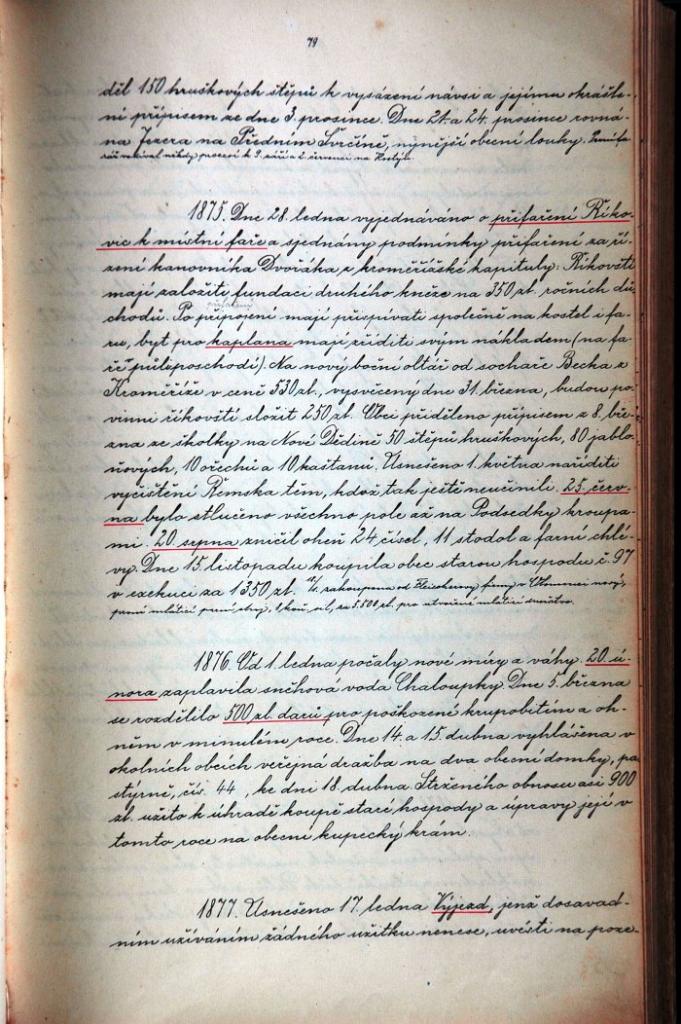 79
děl 150 hruškových štěpů k vysázení návsi a jejímu okrášle-
ní přípisem ze dne 3. prosince. Dne 21. a 24. prosince rovná-
na Jezera na Předním Svrčíně, nynější obecní louky.
1875. Dne 28. ledna vyjednáváno o přifaření Říko-
vic k místní faře a sjednány podmínky přifaření za ří-
zení kanovníka Dvořáka z kroměřížské kapituly: Říkovští
mají založiti fundaci druhého kněze na 350 zl. ročních dů-
chodů. Po připojení mají přispívati společně na kostel i fa-
ru, byt pro kaplana mají zříditi svým nákladem (na fa-
ře půlposchodí). Na nový boční oltář od sochaře Becka z
Kroměříže v ceně 530 zl., vysvěcený dne 31. března, budou po-
vinni říkovští složit 250 zl. Obci přiděleno přípisem z 8. bře-
zna ze školky na Nové Dědině 50 štěpů hruškových, 80 jablo-
ňových, 10 ořechů a 10 kaštanů. Usneseno 1. května naříditi
vyčištění Řemska těm, kdož tak ještě neučinili. 25. červ-
na bylo stlučeno všechno pole až na Podsedky kroupa-
mi. 20. srpna zničil oheň 24 čísel, 11 stodol a farní chlé-
vy. Dne 15. listopadu koupila obec starou hospodu č. 97
v exekuci za 1350 zl. zakoupena od firmy v Olomouci nový
parní mláticí stroj, za 5.500 zl. pro utvořené mlátící družstvo.
1876. Od 1. ledna počaly nové míry a váhy. 20. ú-
nora zaplavila sněhová voda Chaloupky. Dne 5. března
se rozdělilo 500 zl. darů pro poškozené krupobitím a oh-
něm v minulém roce. Dne 14. a 15. dubna vyhlášena v
okolních obcích veřejná dražba na dva obecní domky, pa-
stýrně, čís. 44, ke dni 18. dubna. Strženého obnosu asi 900
zl. užito k úhradě koupě staré hospody a úpravy její v
tomto roce na obecní kupecký krám.
1877. Usneseno 17. ledna Výjezd, jenž dosavad-
ním užíváním žádného užitku nenese, uvésti na poze-